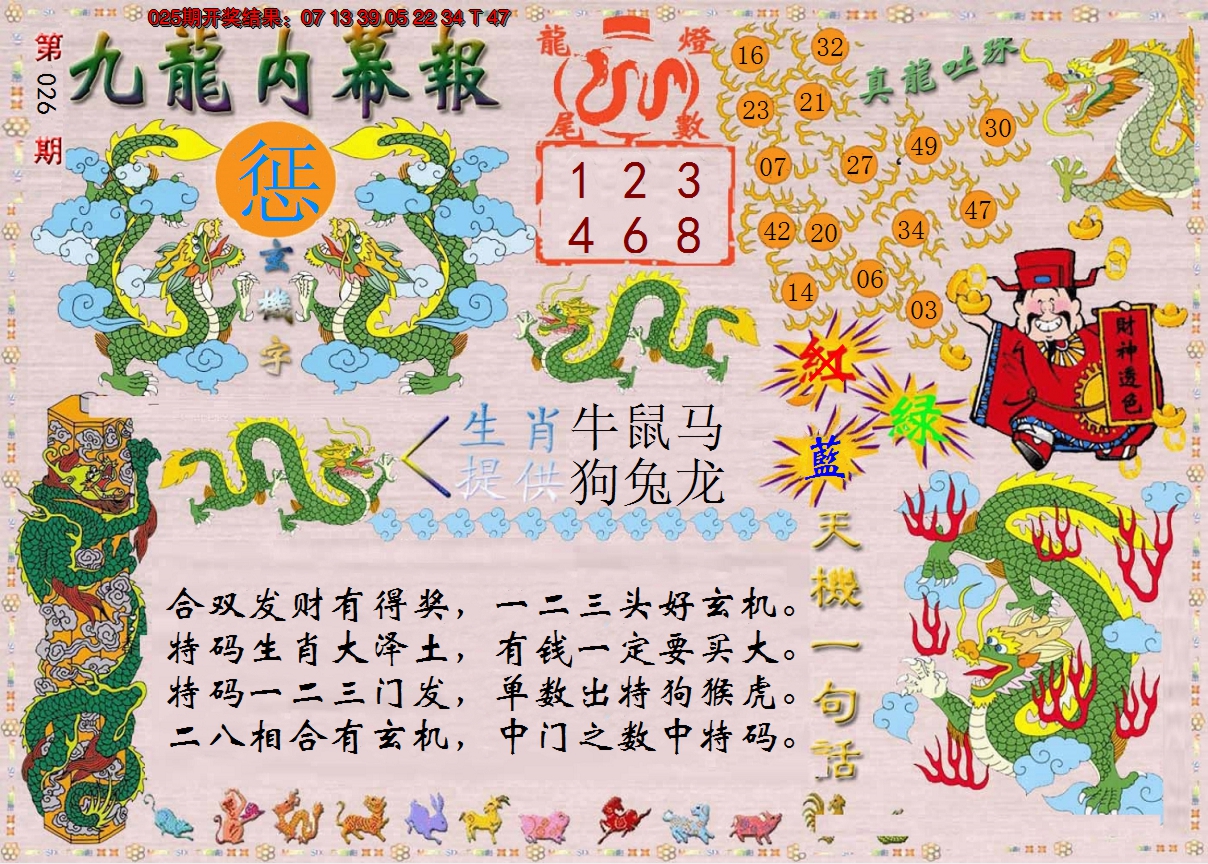 025期开奖结果：07 13 39 05 22 34 T 47
第026期
九龍内幕報
惩
玄機字
龍燈
尾數
1 2 3
4 6 8
真龍吐珠
16
32
23
21
49
30
07
27
47
42
20
34
14
06
03
財神透色
紅
綠
藍
生肖 牛鼠马
提供 狗兔龙
天機一句話
合双发财有得奖，一二三头好玄机。
特码生肖大泽土，有钱一定要买大。
特码一二三门发，单数出特狗猴虎。
二八相合有玄机，中门之数中特码。